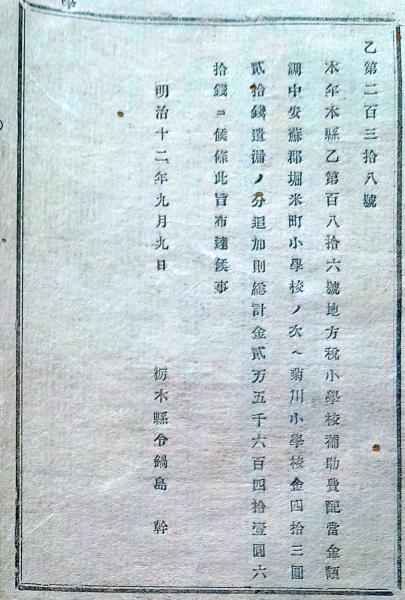 乙第二百三拾八號
本年本縣乙第百八拾六號地方稅小學校補助費配當金額
調中安蘇郡堀米町小學校ノ次ヘ菊川小學校金四拾三圓
貳拾錢遺漏ノ分追加則総計金貳万五千六百四拾壹圓六
拾錢ニ候條此旨布達候事
明治十二年九月九日
栃木縣令鍋島幹